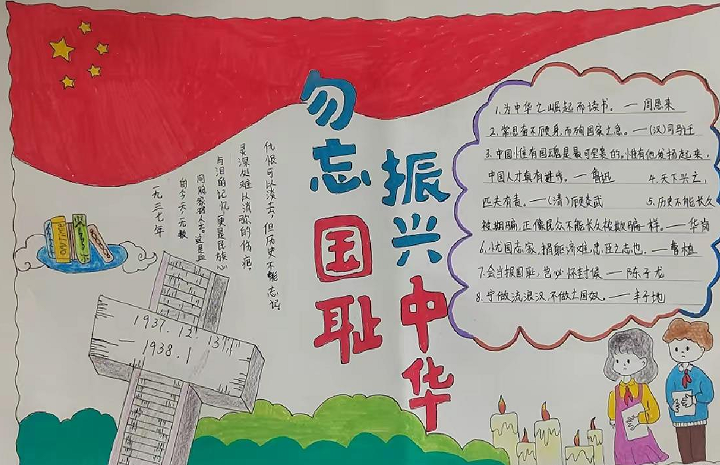 勿忘国耻
振兴中华
1.为中华之崛起而读书。—周恩来
2.常思奋不顾身,而殉国家之急。—(汉)司马迁
3.中国惟有国魂是最可宝贵的,惟有他发扬起来,
中国人才真有进步。—鲁迅 4.天下兴亡,
匹夫有责。—(清)顾炎武 5.历史不能长久
被欺骗,正像民众不能长久被欺骗一样。—华岗
6.忧国忘家,捐躯济难,忠臣之志也。—曹植
7.会当报国
8.宁做流浪汉,不做亡国奴。—丰子
仇恨可以淡去,但历史不能忘记
灵深处难以消弥的伤痕
与泪的记忆,更是民族心
同胞
一九三七年
1937.12.13
1938.1